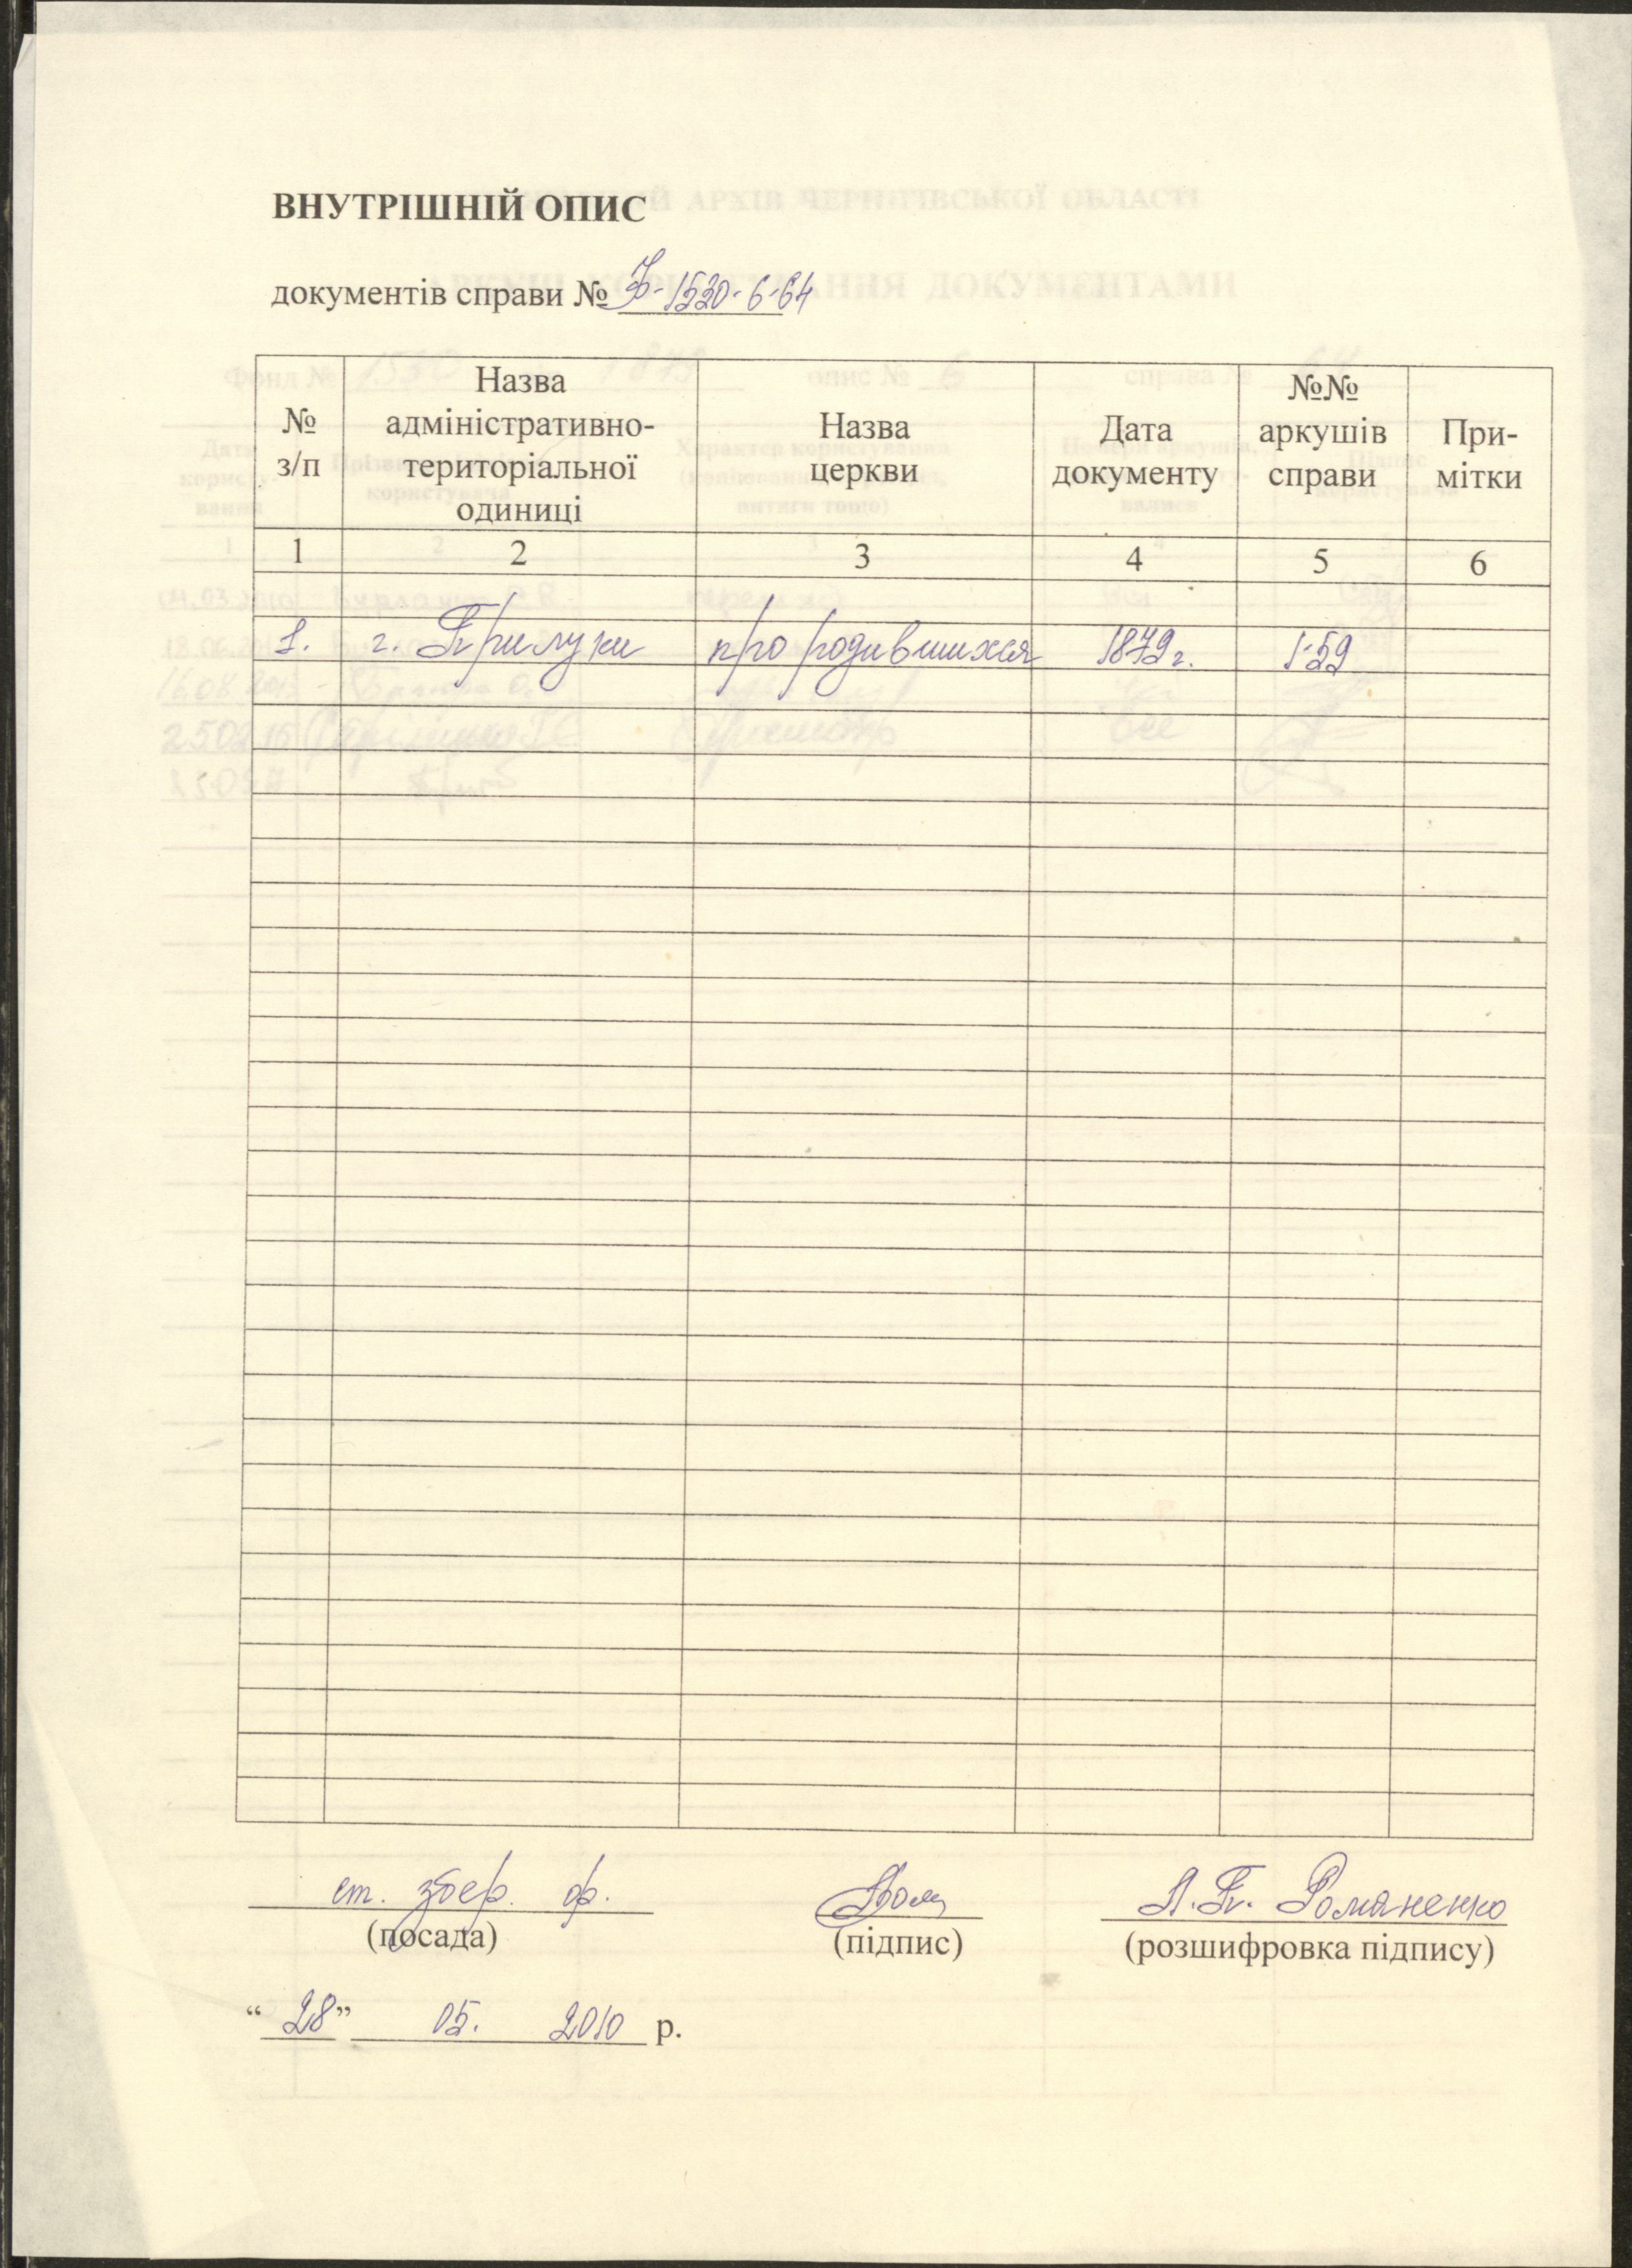 ВНУТРІШНІЙ ОПИС
документів справи № Ф-1530-6-64
№ з/п
Назва адміністративно-територіальної одиниці
Назва церкви
Дата документу
№№ аркушів справи
При-мітки
1 2 3 4 5 6
1. г. Прилуки про родившихся 1879 г. 1-59
ст. збер. ф. Л.П. Романенко
(посада) (підпис) (розшифровка підпису)
“28” 05. 2010 р.